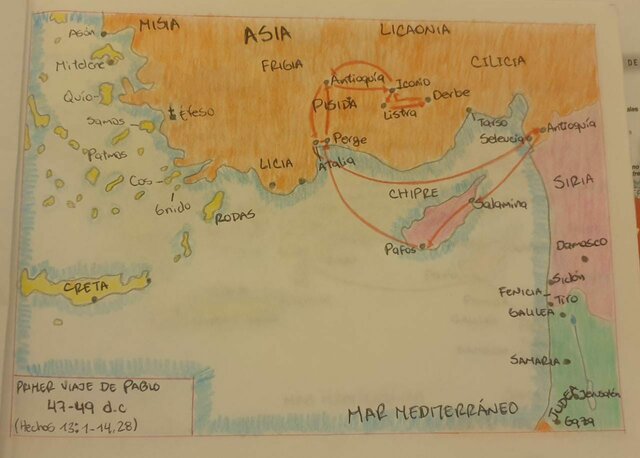 MISIA
ASIA
LICAONIA
Asón
Mitelene
FRIGIA
CILICIA
Antioquía
Iconio
Quío
PISIDIA
Derbe
Listra
Éfeso
Samos
Tarso
Antioquía
Seleucia
Perge
Atalia
Patmos
LICIA
Cos
CHIPRE
SIRIA
Gnido
RODAS
Salamina
Pafos
Damasco
CRETA
Sidón
FENICIA
Tiro
GALILEA
SAMARIA
JUDEA
Jerusalén
Gaza
PRIMER VIAJE DE PABLO
47-49 d.c
(Hechos 13:1-14,28)
MAR MEDITERRÁNEO
DE